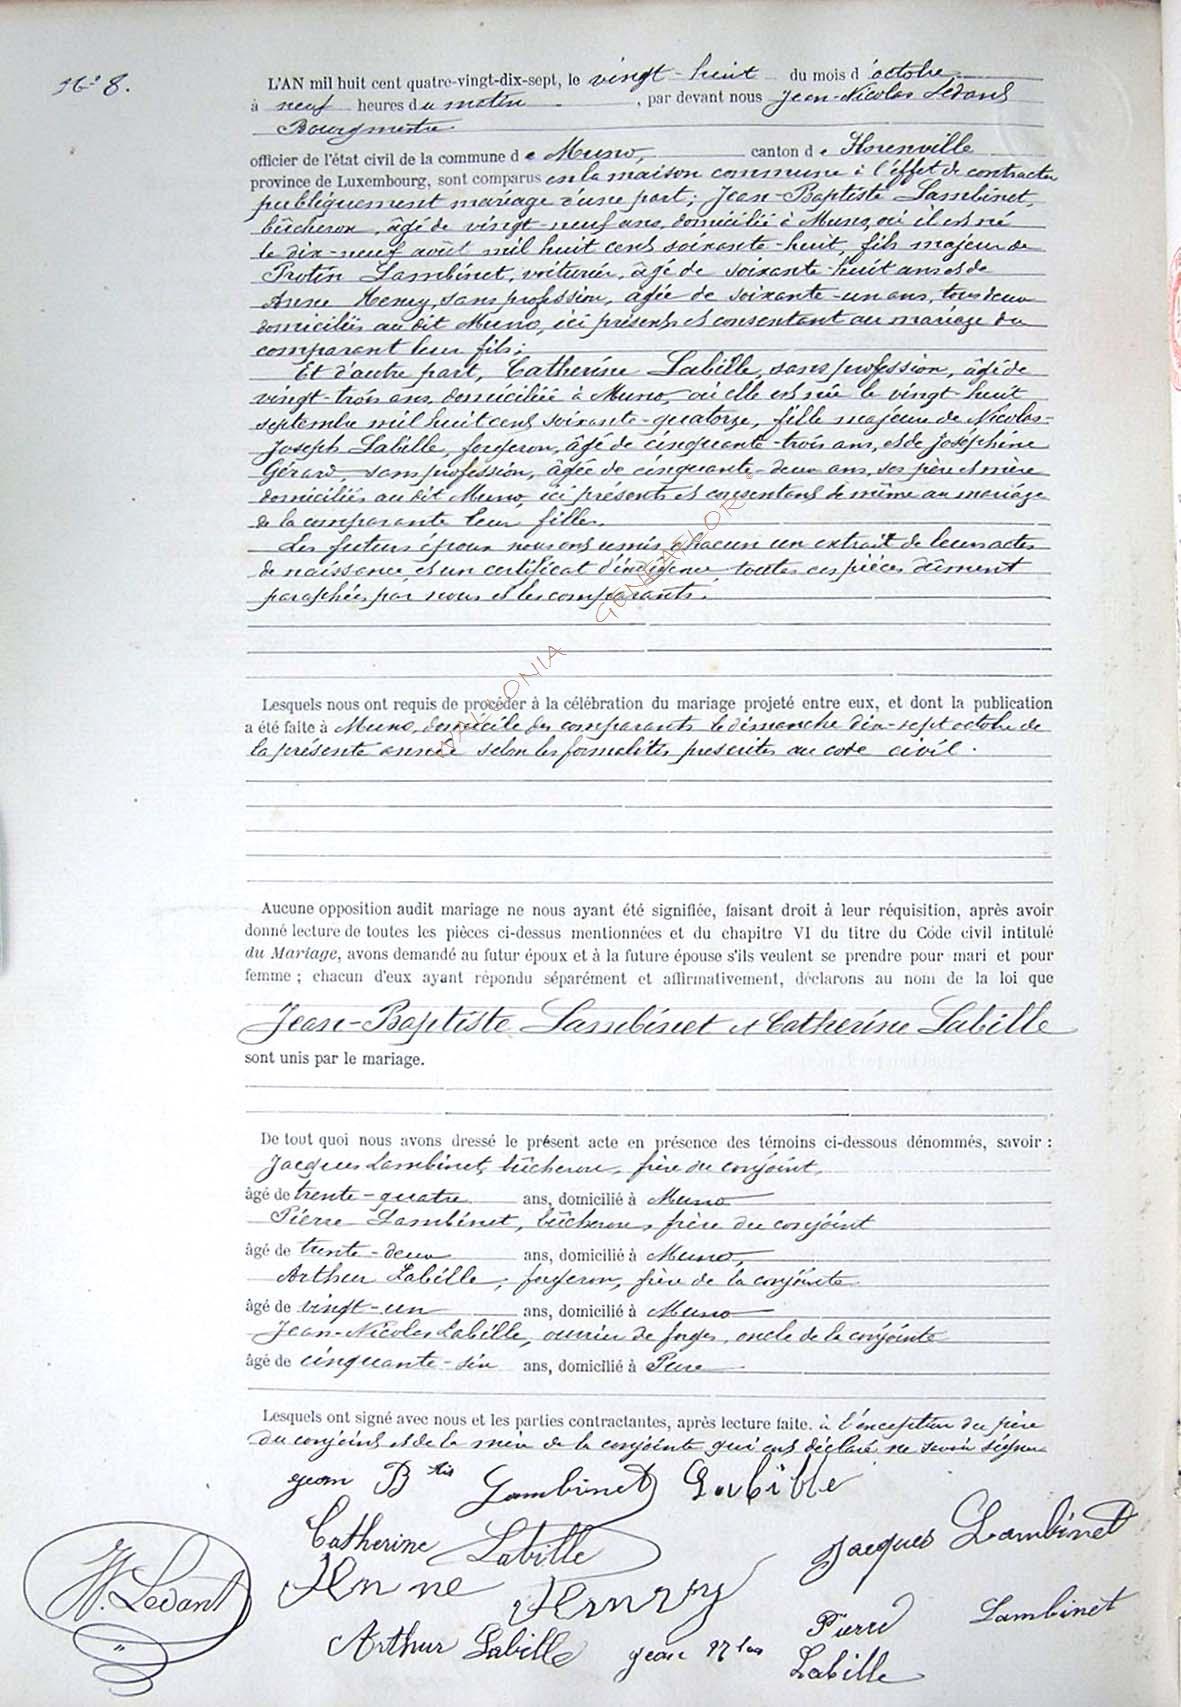 N° 8.
L'AN mil huit cent quatre-vingt-dix-sept, le vingt-huit du mois d'octobre
à neuf heures du matin, par devant nous Jean-Nicolas Ledant
Bourgmestre
officier de l'état civil de la commune de Muno, canton de Florenville
province de Luxembourg, sont comparus en la maison commune à l'effet de contracter
publiquement mariage d'une part; Jean-Baptiste Lambinet,
bûcheron, âgé de vingt-neuf ans, domicilié à Muno, où il est né
le dix-neuf août mil huit cent soixante-huit, fils majeur de
Protin Lambinet, voiturier, âgé de soixante-huit ans et de
Anne Henry, sans profession, âgée de soixante-un ans, tous deux
domiciliés au dit Muno, ici présents et consentant au mariage du
comparant leur fils;
Et d'autre part, Catherine Labille, sans profession, âgée de
vingt-trois ans, domiciliée à Muno, où elle est née le vingt-huit
septembre mil huit cent soixante-quatorze, fille majeure de Nicolas-
Joseph Labille, forgeron, âgé de cinquante-trois ans, et de Joséphine
Gérard, sans profession, âgée de cinquante-deux ans, ses père et mère
domiciliés au dit Muno, ici présents et consentant de même au mariage
de la comparante leur fille.
Les futurs époux nous ont remis chacun un extrait de leur actes
de naissance et un certificat d'indigence, toutes ces pièces dûment
paraphées par nous et les comparants.
WALLONIA GENEAFLOR
Lesquels nous ont requis de procéder à la célébration du mariage projeté entre eux, et dont la publication
a été faite à Muno, domicile des comparants le dimanche dix-sept octobre de
la présente année selon les formalités prescrites au code civil.
Aucune opposition audit mariage ne nous ayant été signifiée, faisant droit à leur réquisition, après avoir
donné lecture de toutes les pièces ci-dessus mentionnées et du chapitre VI du titre du Code civil intitulé
du Mariage, avons demandé au futur époux et à la future épouse s'ils veulent se prendre pour mari et pour
femme ; chacun d'eux ayant répondu séparément et affirmativement, déclarons au nom de la loi que
Jean-Baptiste Lambinet et Catherine Labille
sont unis par le mariage.
De tout quoi nous avons dressé le présent acte en présence des témoins ci-dessous dénommés, savoir :
Jacques Lambinet, bûcheron, frère du conjoint,
âgé de trente-quatre ans, domicilié à Muno
Pierre Lambinet, bûcheron, frère du conjoint
âgé de trente-deux ans, domicilié à Muno,
Arthur Labille, forgeron, frère de la conjointe
âgé de vingt-un ans, domicilié à Muno
Jean-Nicolas Labille, ouvrier de forges, oncle de la conjointe
âgé de cinquante-six ans, domicilié à Pure
Lesquels ont signé avec nous et les parties contractantes, après lecture faite. à l'exception du père
du conjoint et de la mère de la conjointe qui ont déclaré ne savoir signer
Jean Btis Lambinet Labille
Catherine Labille Jacques Lambinet
Anne Henry
N. Ledant
Pierre Lambinet
Arthur Labille Jean Nlas Labille